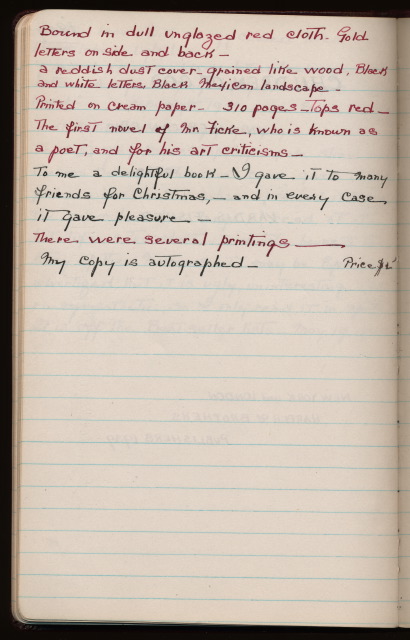 Bound in dull unglazed red cloth. Gold
letters on side and back —
a reddish dust cover grained like wood, Black
and white letters, Black Mexican landscape —
Printed on cream paper — 310 pages — Tops red —
The first novel of Mr Ficke, who is known as
a poet, and for his art criticisms —
To me a delightful book — I gave it to many
friends for Christmas, — and in every case
it gave pleasure —
There were several printings —
My copy is autographed — Price